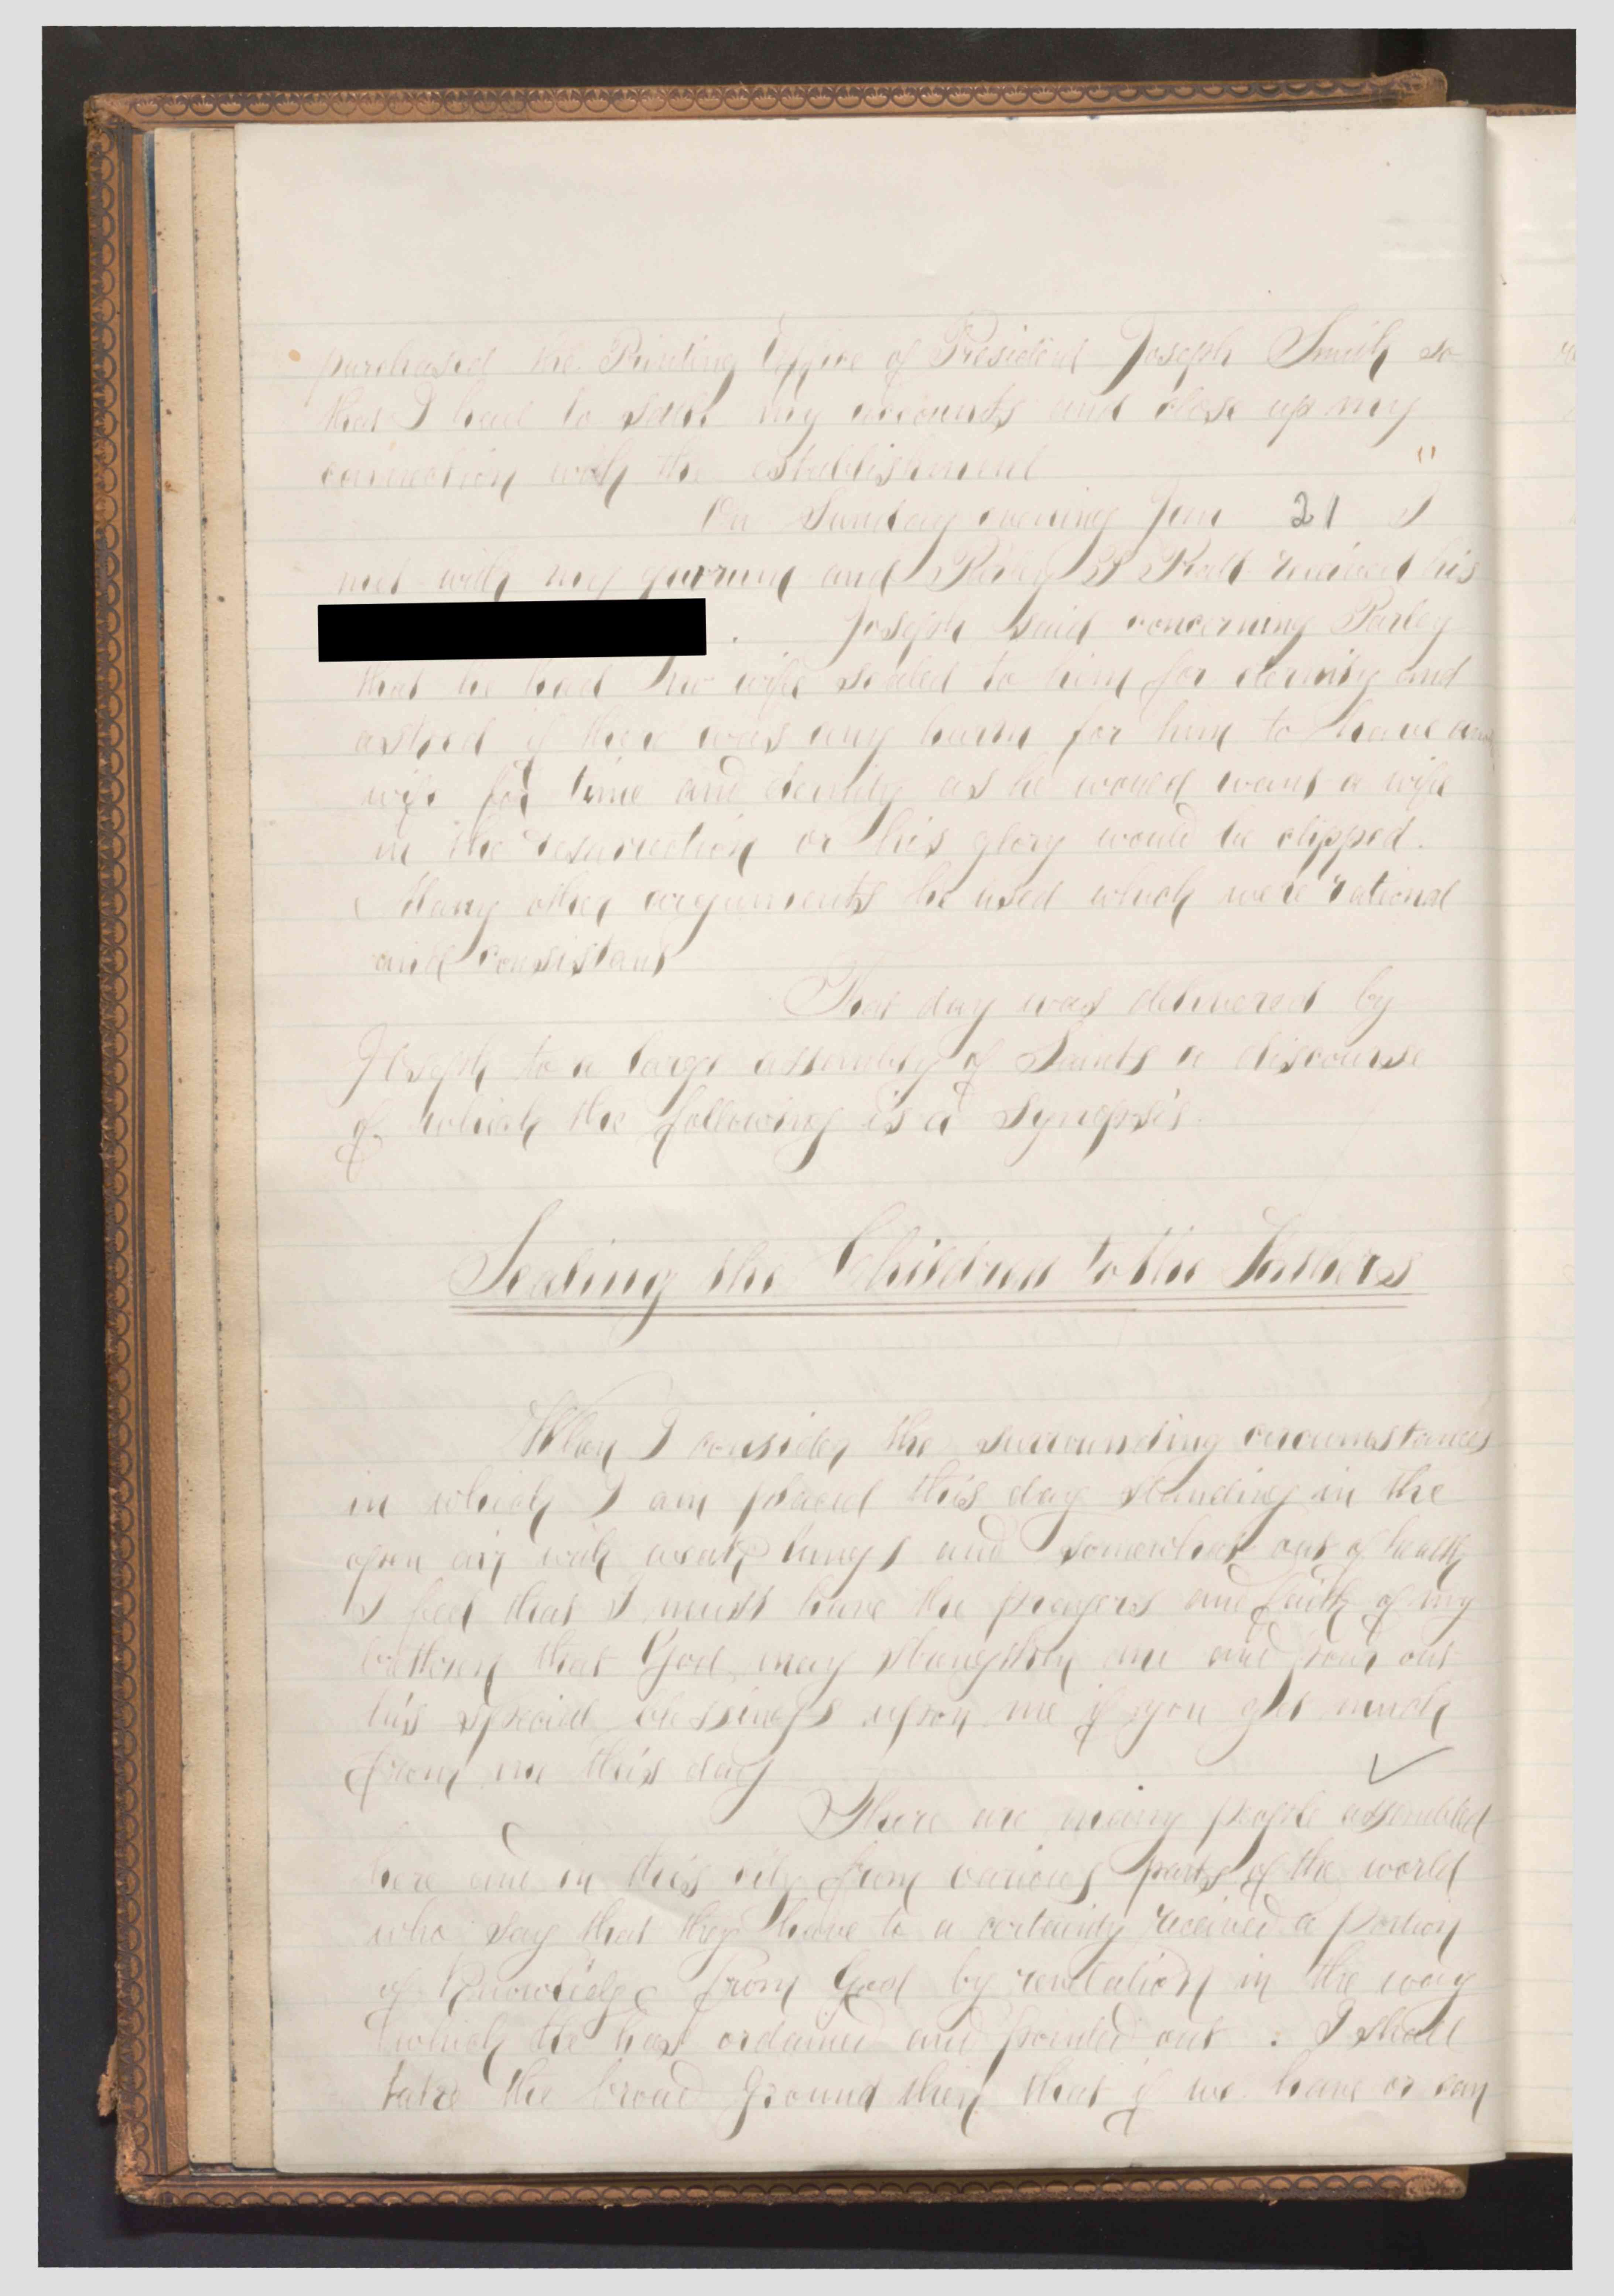 purchased the Printing Office of President Joseph Smith so
that I had to settle my accounts and close up my
connection with the establishment "
On Sunday evening Jan 21 I
met with my quorum and Parley P Pratt received his
. Joseph said concerning Parley
that he had no wife sealed to him for eternity and
asked if there was any harm for him to have
wife for time and eternity as he would want a wife
in the resurrection or his glory would be clipped.
Many other arguments he used which were rational
and consistant
That day was delivered by
Joseph to a large assembly of Saints a discourse
of which the following is a synopsis.
Sealing the Children to the Fathers
When I consider the surrounding circumstances
in which I am placed this day standing in the
open air with weak lungs and somewhat out of health
I feel that I must have the prayers and faith of my
that God may me and pour out
his special blessings upon me if you get much
from me this day
There are many people assembled
here and in this city from various parts of the world
who say that they have to a certainty received a portion
of knowledge from God by revelation in the way
which he has ordained and pointed out. I shall
take the broad ground then that if we have or can